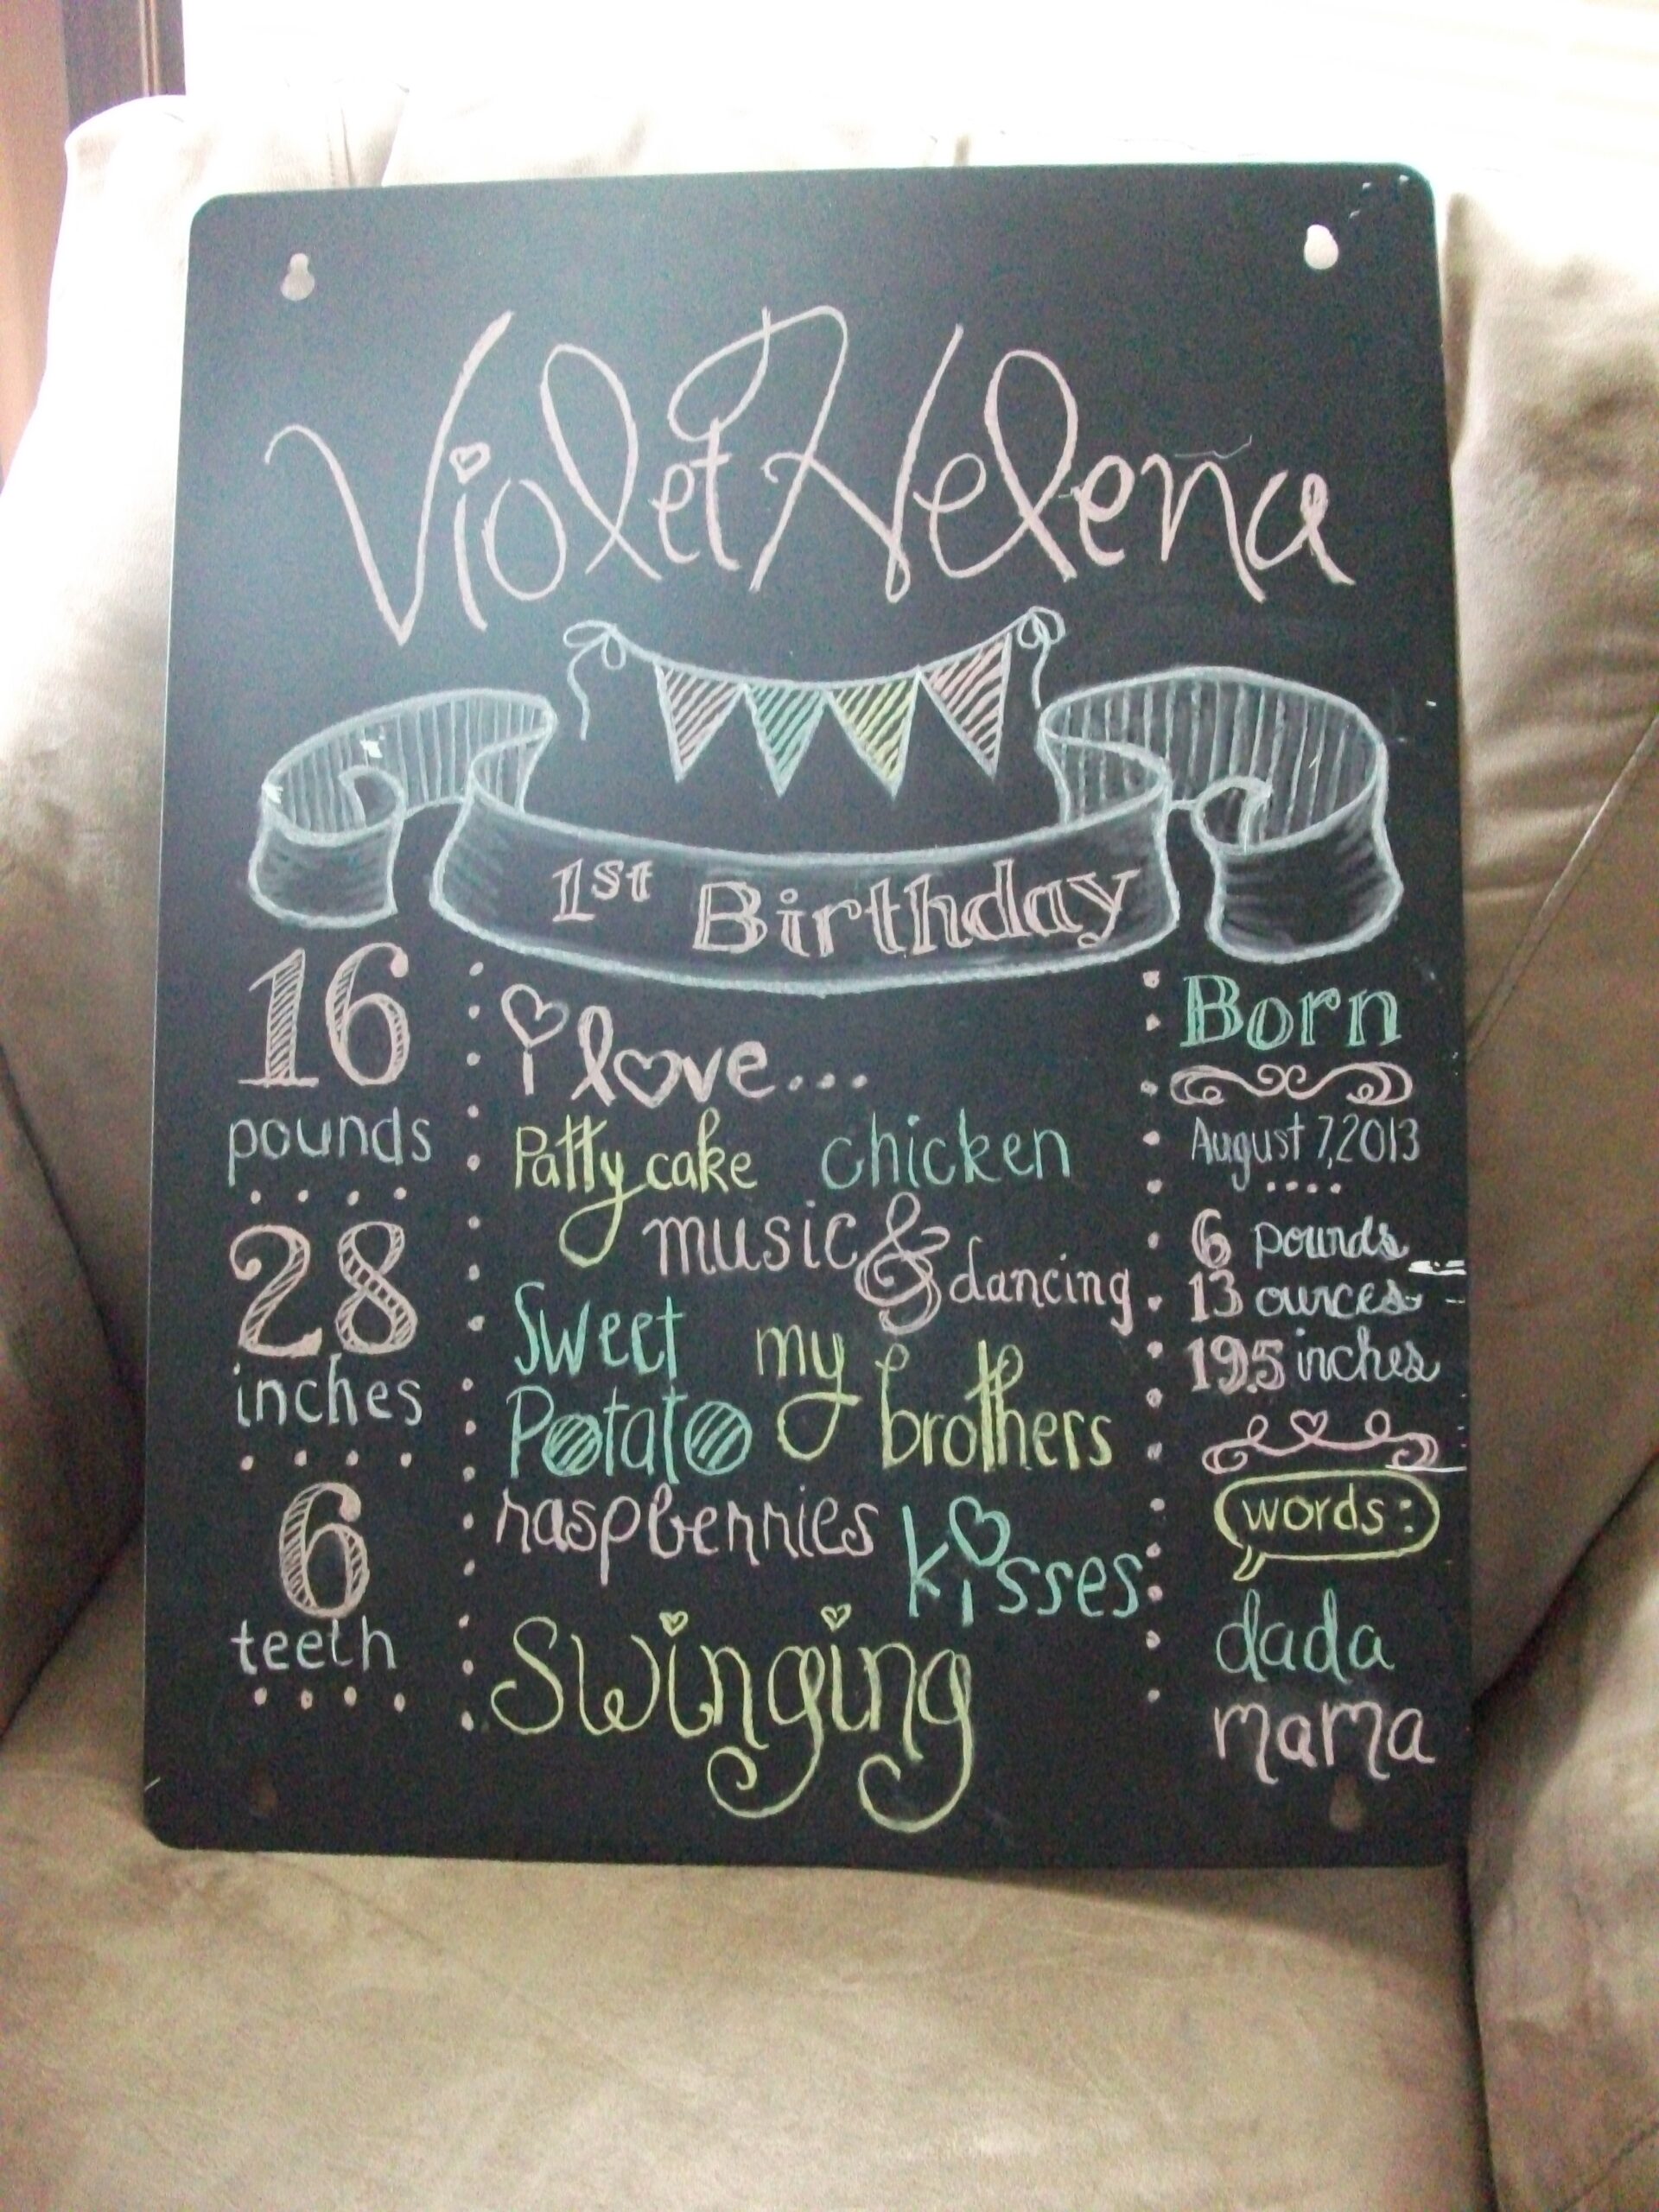 Violet Helena
1st Birthday
16
pounds
28
inches
6
teeth
i love...
Patty cake chicken
music & dancing
Sweet
Potato
my
brothers
raspberries
kisses
Swinging
Born
August 7, 2013
6 pounds
13 ounces
19.5 inches
words:
dada
mama